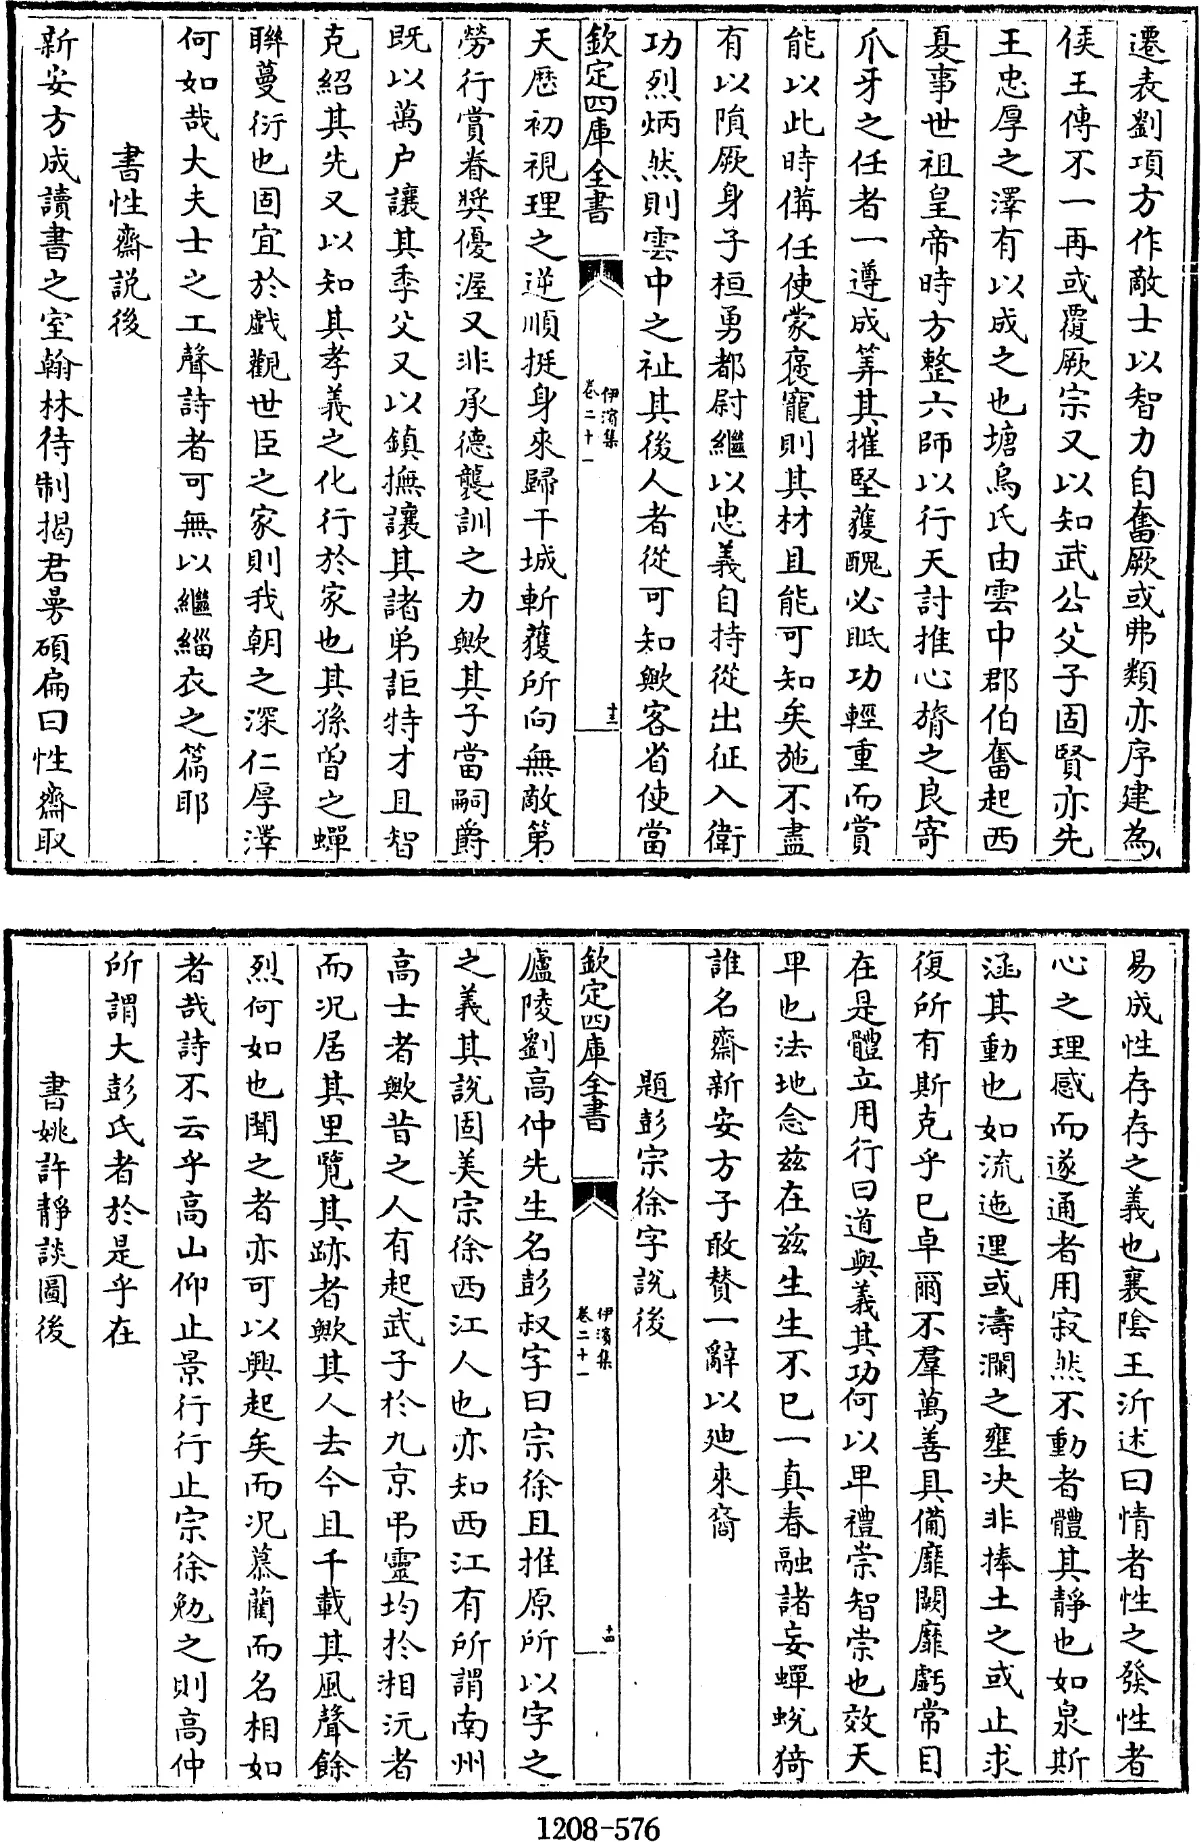 遷表劉項方作敵士以智力自奮厥或弗類亦序建為
侯王傳不一再或覆厥宗又以知武公父子固賢亦先
王忠厚之澤有以成之也塘烏氏由雲中郡伯奮起西
夏事世祖皇帝時方整六師以行天討推心膂之良寄
爪牙之任者一遵成筭其摧堅獲醜必眂功輕重而賞
能以此時僃任使蒙褒寵則其材且能可知矣施不盡
有以隕厥身子桓勇都尉繼以忠義自持從出征入衛
功烈炳然則雲中之祉其後人者從可知歟客省使當
欽定四庫全書
伊濱集
卷二十一
十三
天歴初視理之逆順挺身來歸干城斬獲所向無敵第
勞行賞眷奬優渥又非承德襲訓之力歟其子當嗣爵
既以萬户讓其季父又以鎮撫讓其諸弟詎特才且智
克紹其先又以知其孝義之化行於家也其孫曾之蟬
聯蔓衍也固宜於戲觀世臣之家則我朝之深仁厚澤
何如哉大夫士之工聲詩者可無以繼緇衣之篇耶
書性齋説後
新安方成讀書之室翰林待制揭君曼碩扁曰性齋取
易成性存存之義也襄隂王沂述曰情者性之發性者
心之理感而遂通者用寂然不動者體其靜也如泉斯
涵其動也如流迤邐或濤瀾之壅决非捧土之或止求
復所有斯克乎已卓爾不羣萬善具備靡闕靡虧常目
在是體立用行曰道與義其功何以卑禮崇智崇也效天
卑也法地念兹在兹生生不已一真春融諸妄蟬蛻猗
誰名齋新安方子敢賛一辭以廸來裔
題彭宗徐字說後
欽定四庫全書
伊濱集
卷二十一
十四
廬陵劉高仲先生名彭叔字曰宗徐且推原所以字之
之義其說固美宗徐西江人也亦知西江有所謂南州
高士者歟昔之人有起武子於九京弔靈均於湘沅者
而况居其里覽其跡者歟其人去今且千載其風聲餘
烈何如也聞之者亦可以興起矣而况慕藺而名相如
者哉詩不云乎高山仰止景行行止宗徐勉之則高仲
所謂大彭氏者於是乎在
書姚許靜談圖後
1208-576